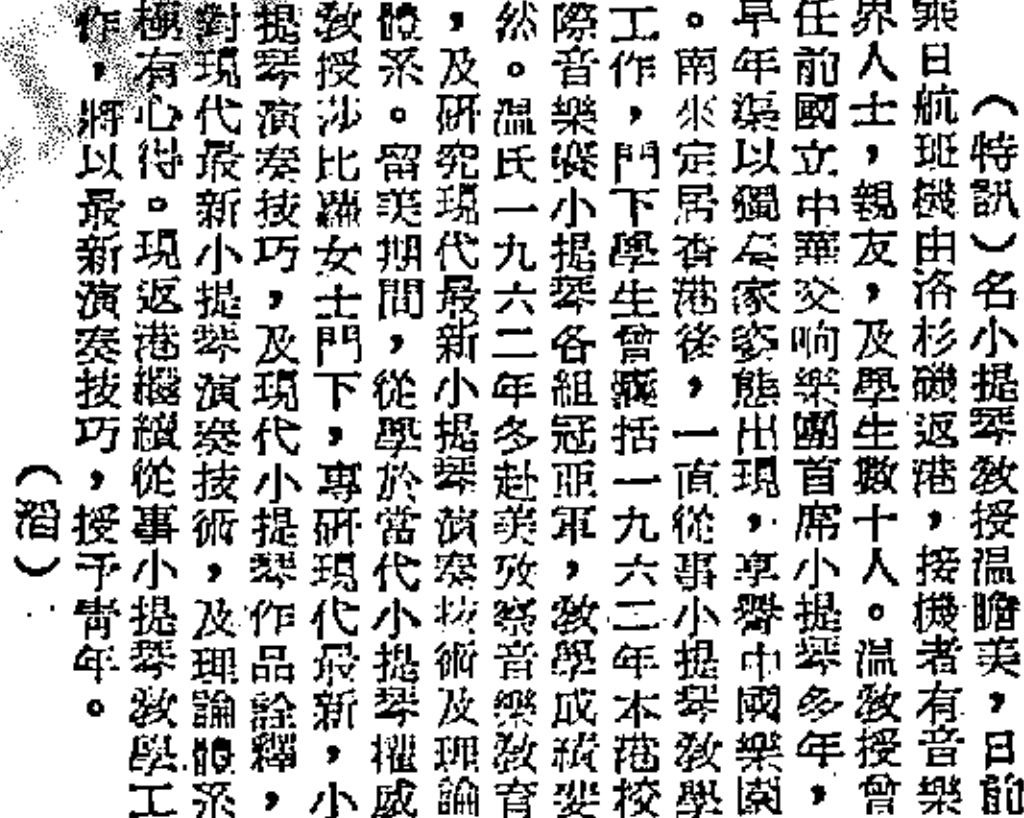 （特訊）名小提琴教授温瞻美，日前
乘日航班機由洛杉磯返港，接機者有音樂
界人士，親友，及學生數十人。温教授曾
任前國立中華交响樂團首席小提琴多年，
早年渠以獨奏家姿態出現，享譽中國樂園
。南來定居香港後，一直從事小提琴教學
工作，門下學生曾囊括一九六二年本港校
際音樂獎小提琴各組冠亞軍，教學成績斐
然。温氏一九六二年冬赴美攷察音樂教育
，及研究現代最新小提琴演奏技術及理論
體系。留美期間，從學於當代小提琴權威
教授莎比羅女士門下，專研現代最新，小
提琴演奏技巧，及現代小提琴作品詮釋，
對現代最新小提琴演奏技術，及理論體系
極有心得。現返港繼續從事小提琴教學工
作，將以最新演奏技巧，授予青年。
（滔）